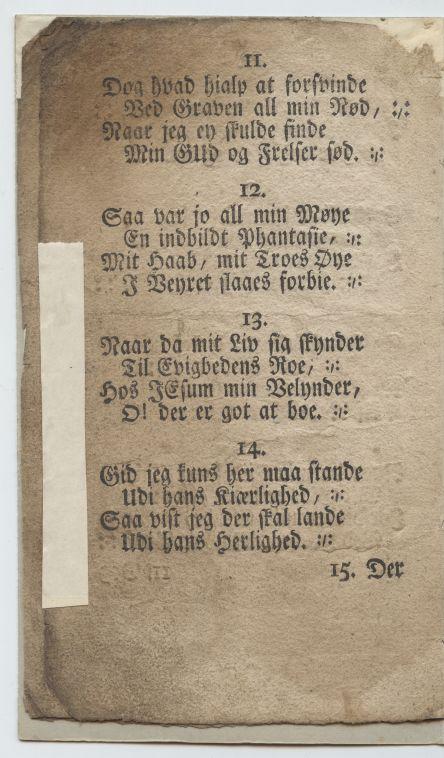 11.
Dog hvad hialp at forsvinde
Ved Graven all min Nød, :,:
Naar jeg ey skulde finde
Min GUd og Frelser sød. :,:
12.
Saa var jo all min Møye
En indbildt Phantasie, :,:
Mit Haab, mit Troes Øye
I Veyret slaaes forbie. :,:
13.
Naar da mit Liv sig skynder
Til Evighedens Roe, :,:
Hos JEsum min Velynder,
O! der er got at boe. :,:
14.
Gid jeg kuns her maa stande
Udi hans Kiærlighed, :,:
Saa vist jeg der skal lande
Udi hans Herlighed. :,:
15. Der